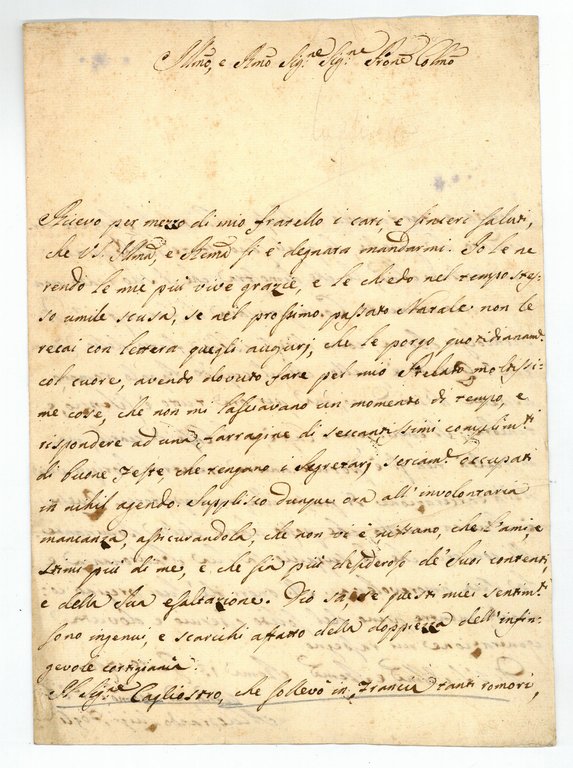 Illmo, e Rmo Sig.re Sig.re Prone Colmo
Ricevo per mezzo di mio fratello i cari, e sinceri saluti,
che V.S. Illma, e Rema si è degnata mandarmi. Io le ne
rendo le mie più vive grazie, e le chiedo nel tempo stes-
so umile scusa, se nel prossimo passato Natale non le
recai con lettera quegli augurj, che le porgo quotidianam.e
col cuore, avendo dovuto fare pel mio Prelato moltissi-
me cose, che non mi lasciavano un momento di tempo, e
rispondere ad una farragine di seccantissimi complim.ti
di buone Feste, che tengano i Segretarj seriam.e occupati
in nihil agendo. Supplisco dunque ora all'involontaria
mancanza, assicurandola, che non vi è nissuno, che l'ami, e
stimi più di me, e che sia più desideroso de' Suoi contenti,
e della Sua esaltazione. Dio sa, se questi miei sentim.ti
sono ingenui, e scarichi affatto della doppiezza dell'infin-
gevole cortigiania.
Il Sig.re Cagliostro, che sollevò in Francia tanti romori,